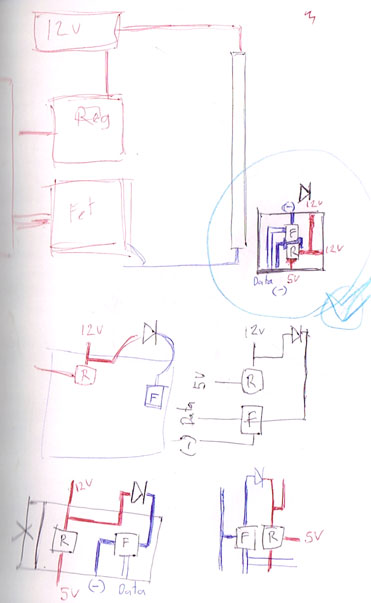 12v
Reg
Fet
(-)
12v
F
R
12V
Data
5V
(-)
12V
R
F
12V
5V
R
Data
F
(-)
12V
R
F
5V
(-)
Data
F
R
5V